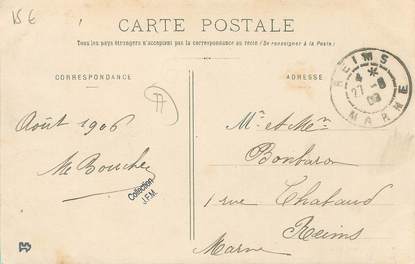 15 €
CARTE POSTALE
Tous les pays étrangers n'acceptent pas la correspondance au recto (Se renseigner à la Poste)
CORRESPONDANCE
ADRESSE
REIMS
4 *
27 -8
MARNE
Août 1906
Collection
J.F.M.
Mr et Me
1 rue
Reims
Marne